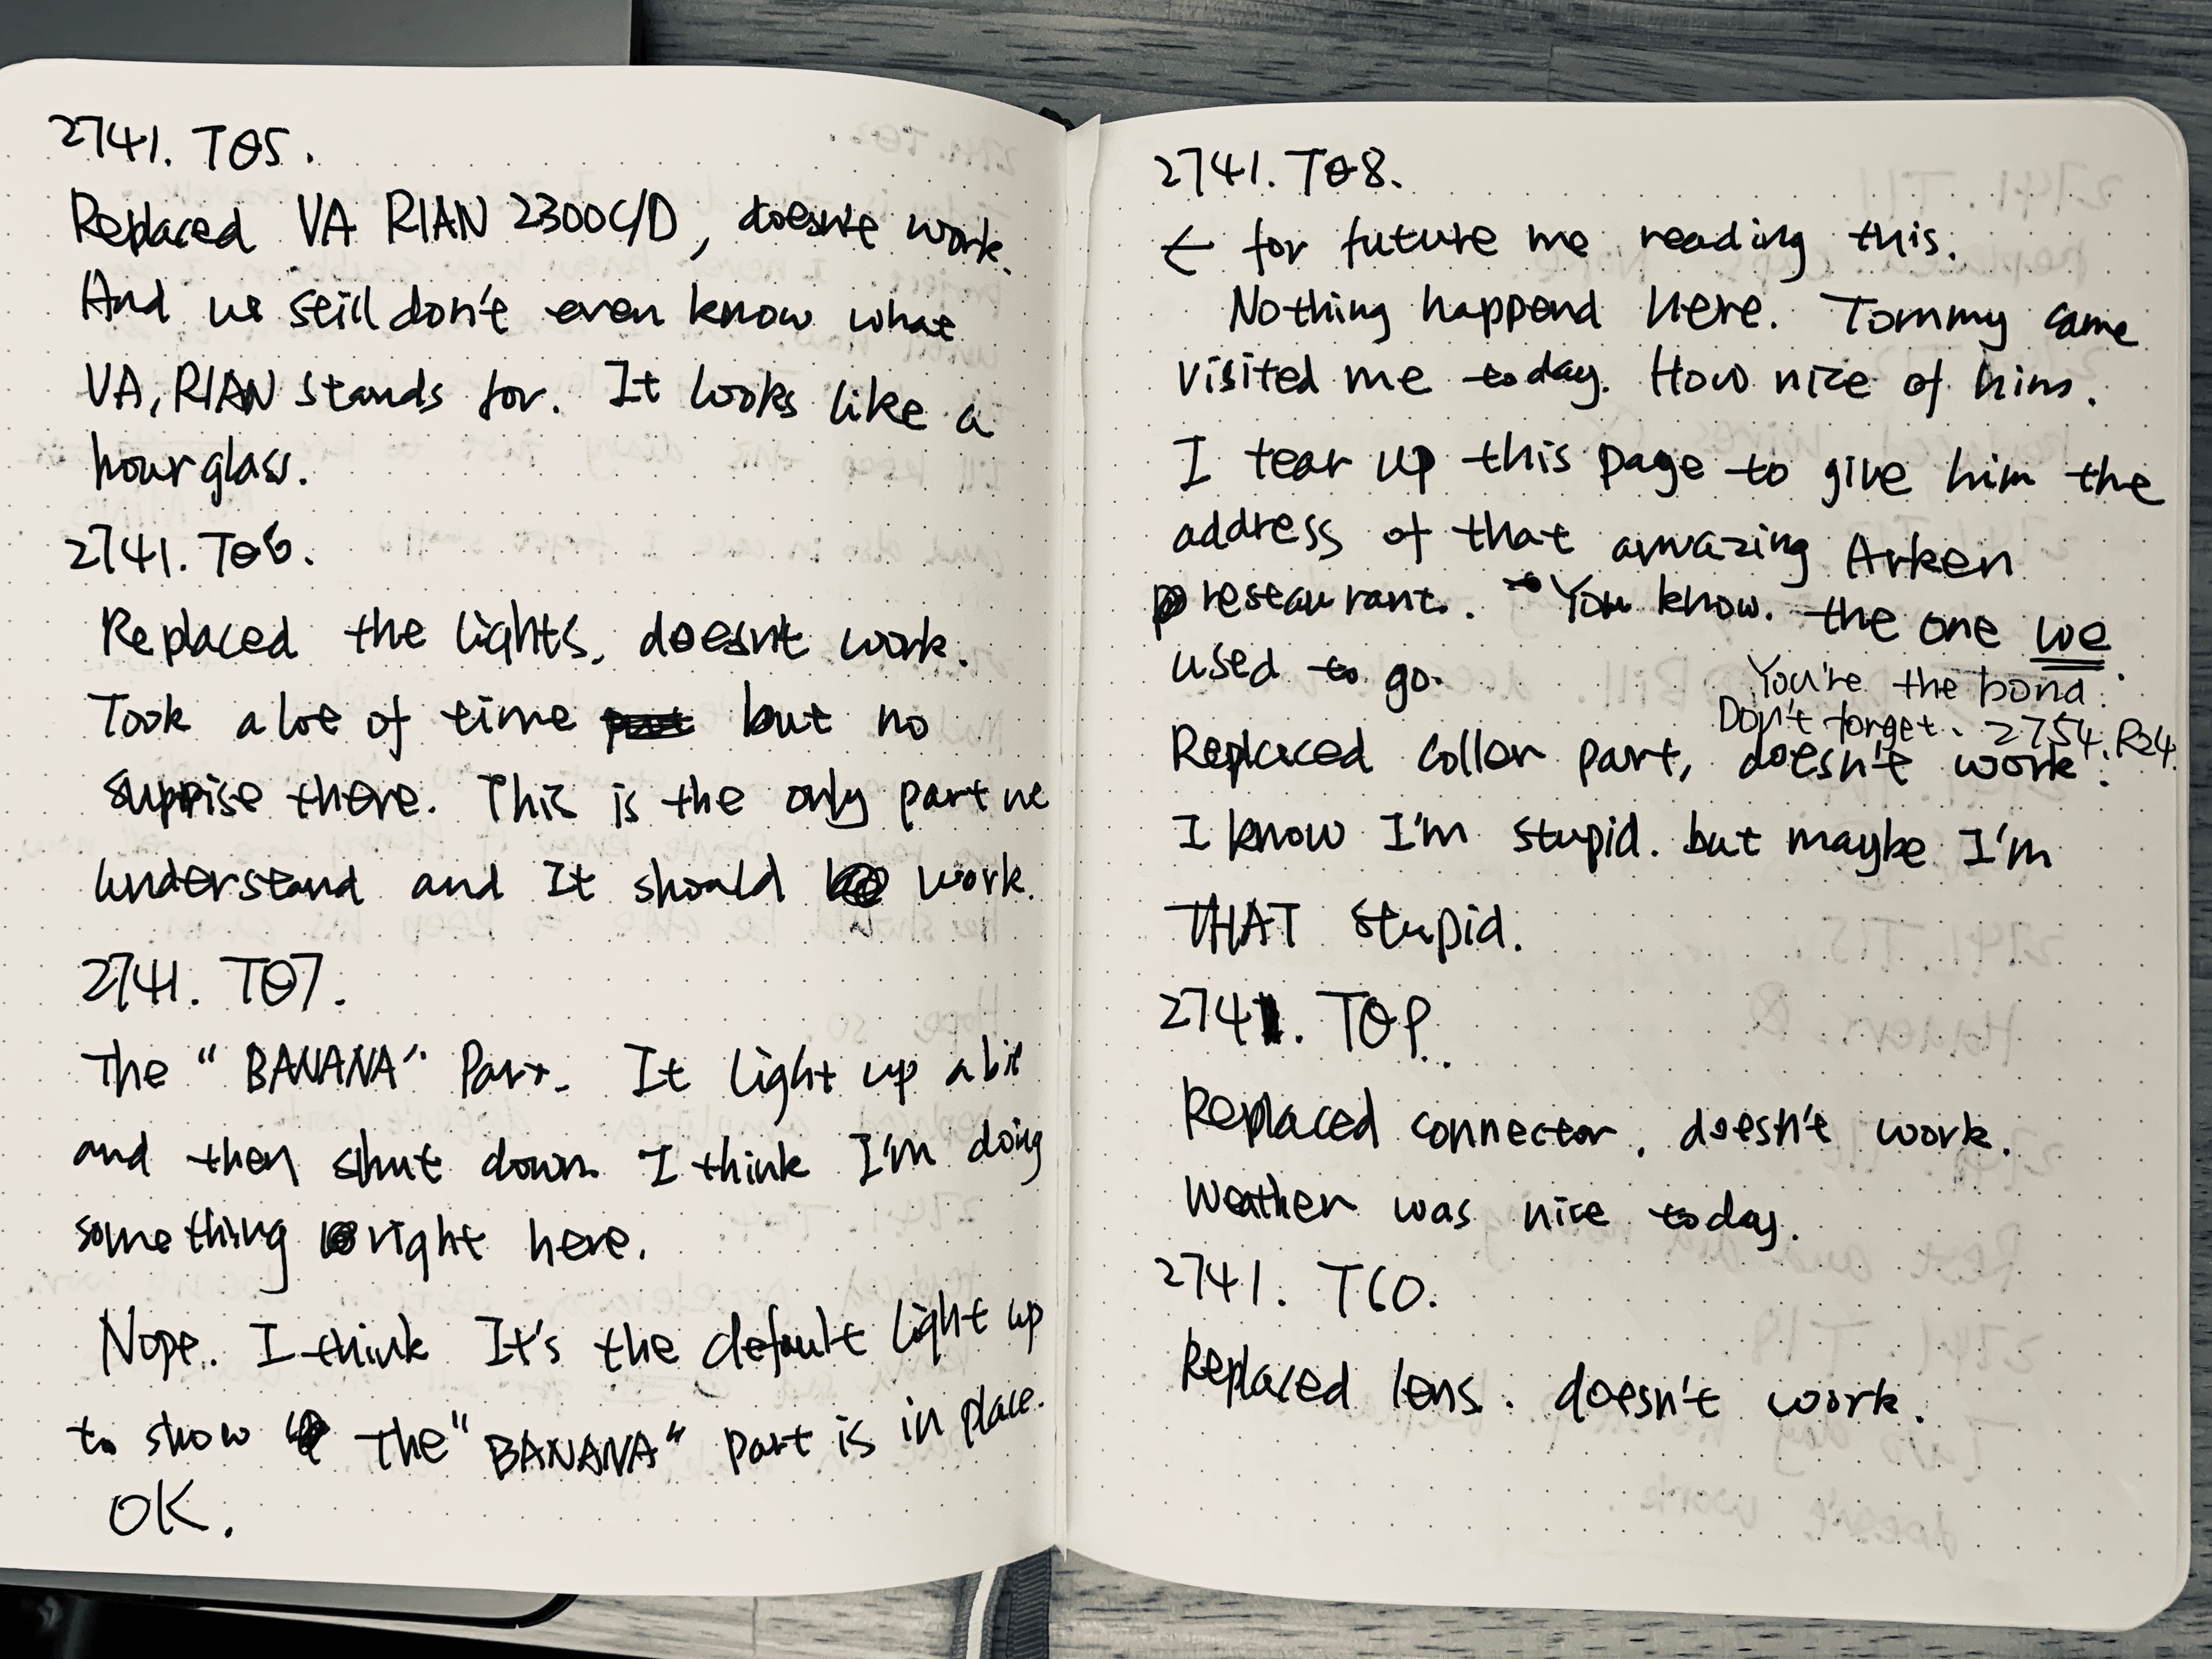 2741. T05.
Replaced VA RIAN 2300C/D, doesn't work.
And we still don't even know what
VA, RIAN stands for. It looks like a
hourglass.
2741. T06.
Replaced the lights, doesn't work.
Took a lot of time but no
suprise there. This is the only part we
understand and It should work.
2741. T07.
The "BANANA" Part. It light up a bit
and then shut down. I think I'm doing
something right here.
Nope. I think It's the default light up
to show The "BANANA" part is in place.
OK.
2741. T08.
← for future me reading this.
Nothing happend here. Tommy came
visited me today. How nice of him.
I tear up this page to give him the
address of that amazing Arken
restaurant. You know. the one we
used to go.
You're the bond.
Don't forget. 2754. R24.
Replaced coller part, doesn't work.
I know I'm stupid. but maybe I'm
THAT stupid.
2741. T09.
Replaced connector, doesn't work.
Weather was nice today.
2741. T60.
Replaced lens. doesn't work.